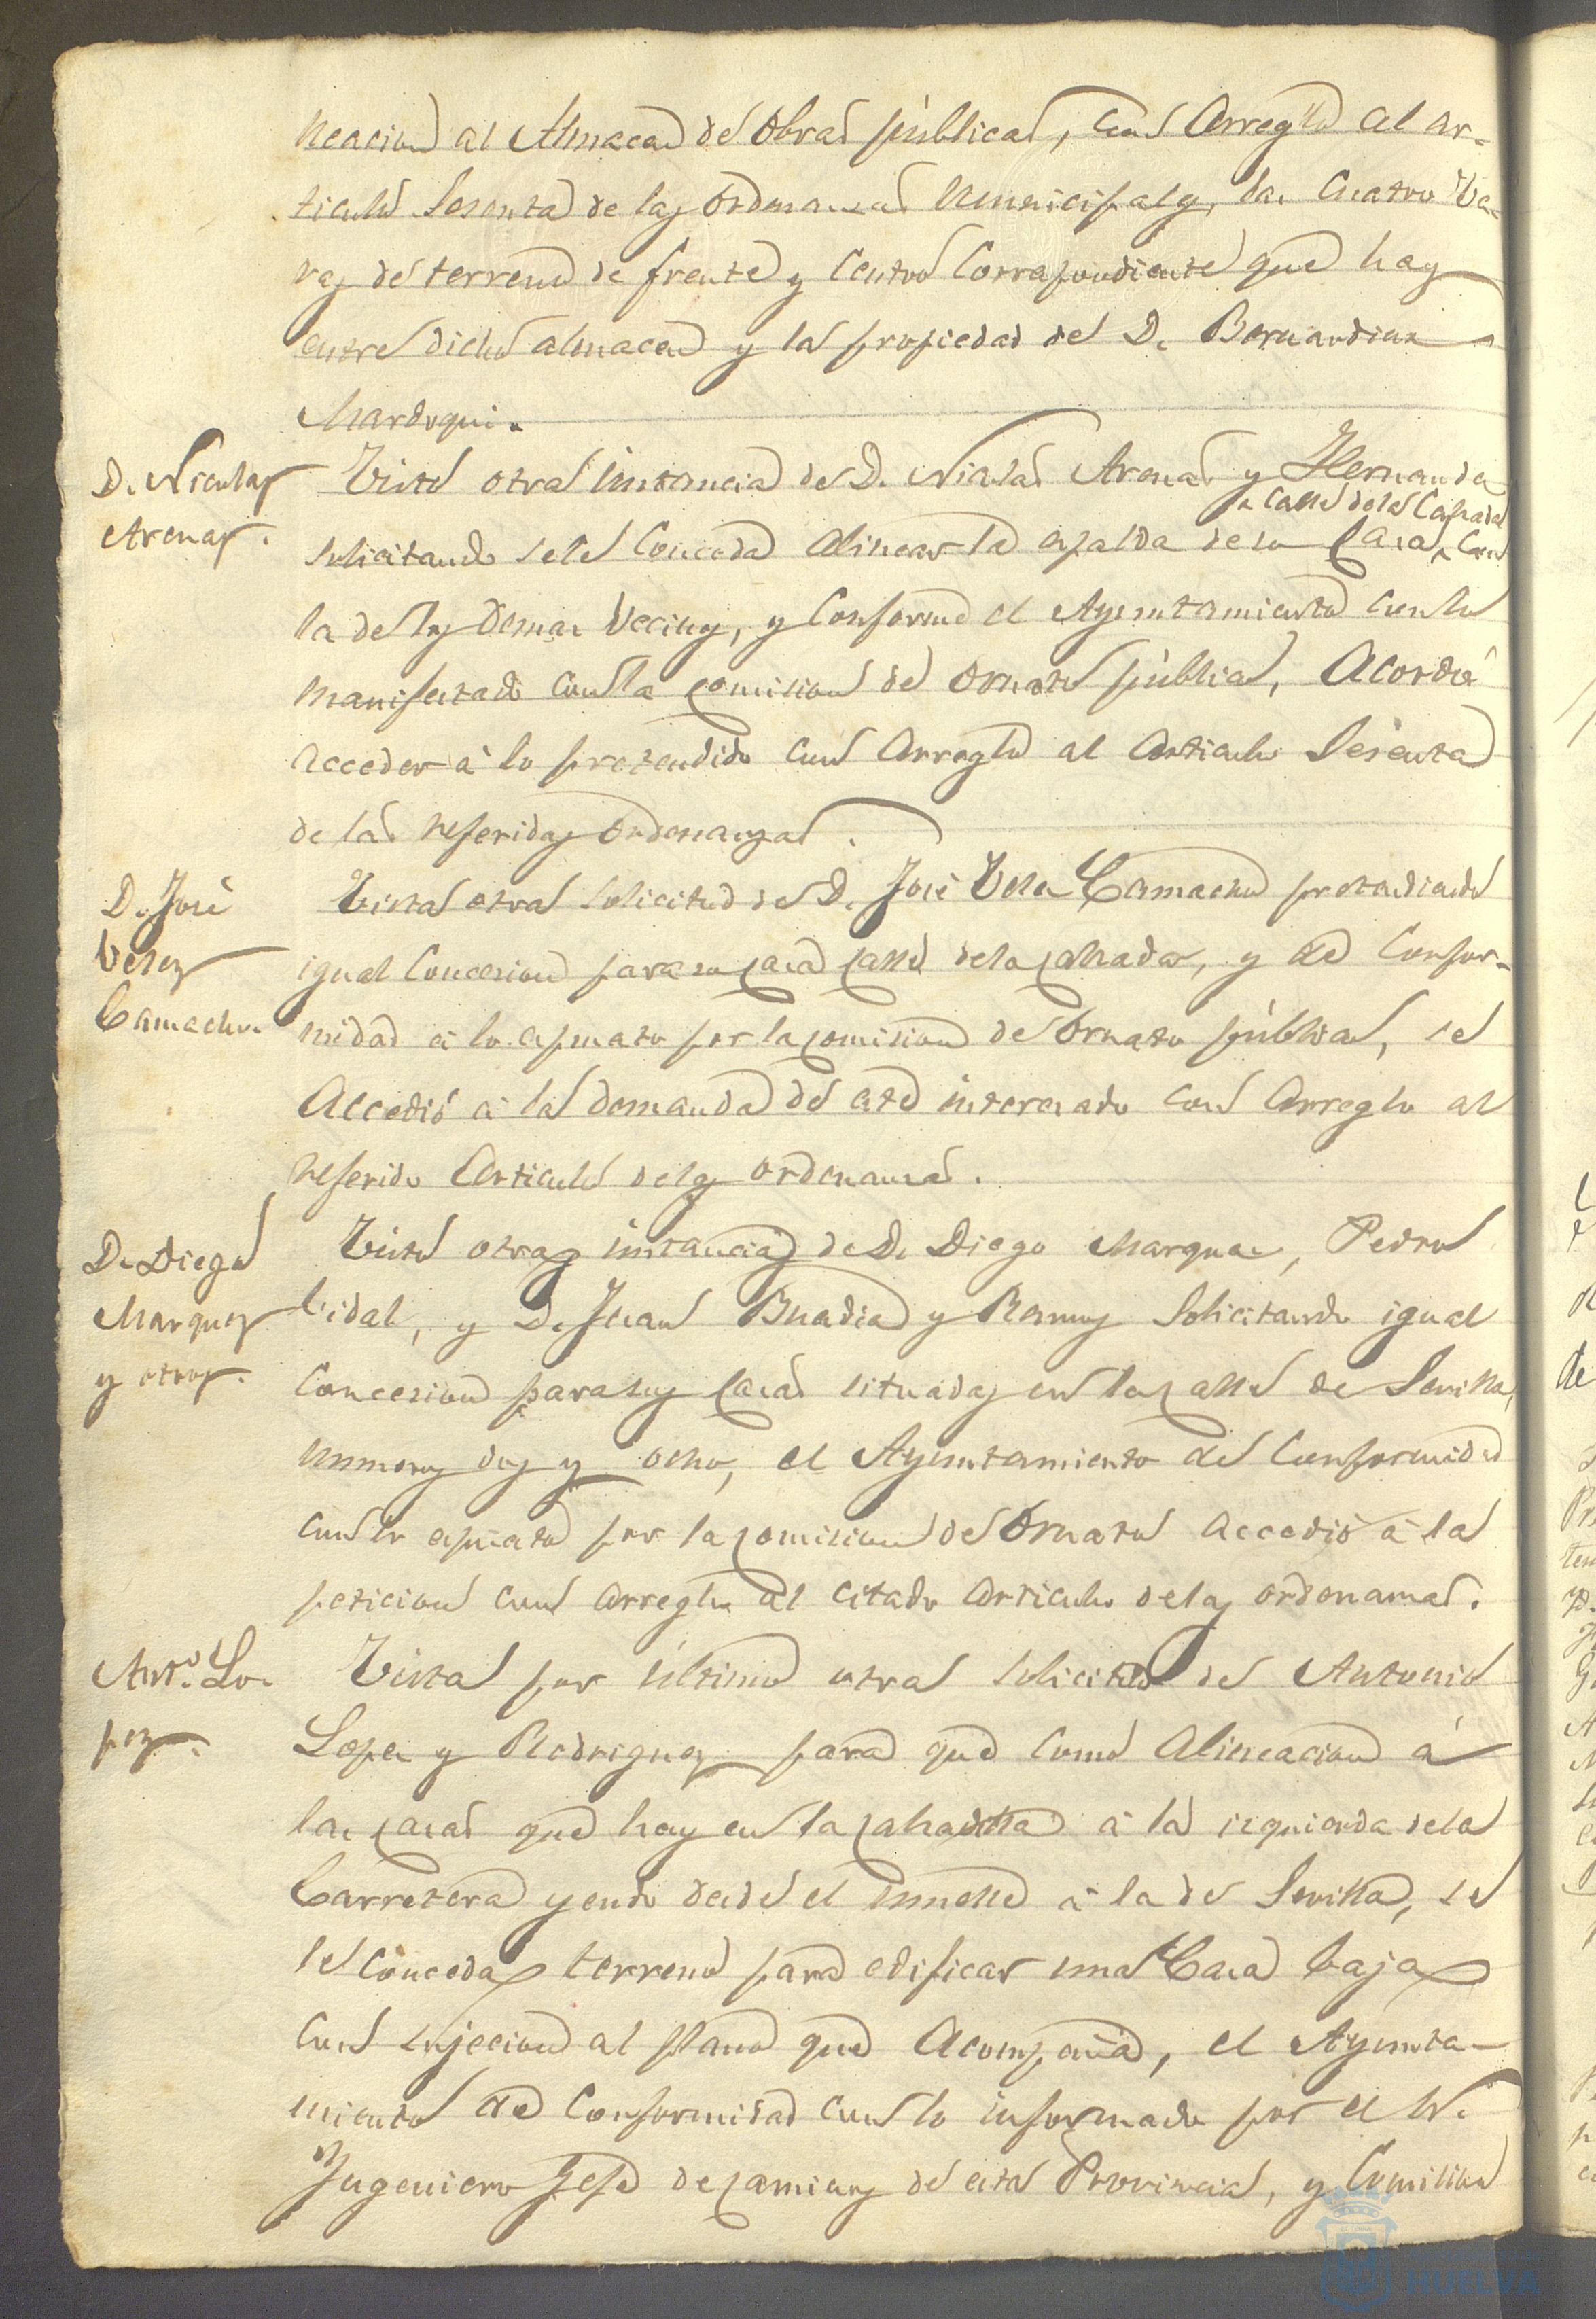 neacion al Almacen de Obras públicas, con arreglo al ar-
ticulo Sesenta de las Ordenanzas Municipales, las cuatro va-
ras de terreno de frente y centro correspondiente que hay
entre dicho almacen y la propiedad de D. Bernardino
Mardoqui.
D. Nicolas
Arenas.
Visto otra instancia de D. Nicolas Arenas y Hernandez
calle de la Calzada
solicitando se le conceda alinear la espalda de su casa con
la de los demas vecinos, y conforme el Ayuntamiento con lo
manifestado con la comision de ornato público, acordó
acceder á lo pretendido con arreglo al articulo Sesenta
de las referidas ordenanzas.
D. José
Velez
Camacho.
Vista otra solicitud de D. José Velez Camacho pretendiendo
igual concesion para su casa calle de la calzada, y de confor-
midad á lo espuesto por la comision de Ornato público, se
accedió á la demanda de este interesado con arreglo al
referido articulo de las ordenanzas.
D. Diego
Marquez
y otros.
Visto otras instancias de D. Diego Marquez, Pedro
Vidal, y D. Juan Buadia y Ramos solicitando igual
concesion para sus casas situadas en la calle de Sevilla,
numeros dos y ocho, el Ayuntamiento de conformidad
con lo espuesto por la comision de Ornato accedió á la
peticion con arreglo al citado articulo de las ordenanzas.
Anto. Lo-
pez.
Vista por último otra solicitud de Antonio
Lopez y Rodriguez para que como alineacion á
las casas que hay en la calzadilla á la izquierda de la
Carretera yendo desde el muelle á la de Sevilla, se
le conceda terreno para edificar una Casa baja
con sujecion al plano que acompaña, el Ayunta-
miento de conformidad con lo informado por el Sr.
Ingeniero Jefe de caminos de esta Provincia, y Comision
HUELVA